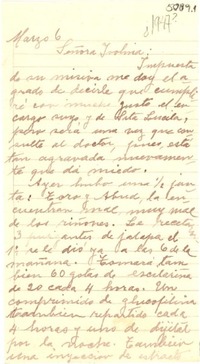 5089.1
¿194?
Marzo 6
Señora Ivolina:
Impuesta
de su misiva me doy el a
grado de decirle que cumpli
ré con mucho gusto el en
cargo suyo, y de Rita Lucila,
pero será una vez que con
sulte al doctor, pues, es
tan agravada nuevamen
te que dá miedo.
Ayer hubo una ½ jun
ta: Toro y Abud, la en
cuentran mal, muy mal
de los riñones. La receta:
antes de jalapa el
1º le dió ya a las 6 de la
mañana. Tomará tam
bien 60 gotas de escilerina
de 20 cada 4 horas. Un
comprimido de glucofilina
tambien repartido cada
4 horas y uno de dijital
por la noche. Tambien
una inyeccion de extracto